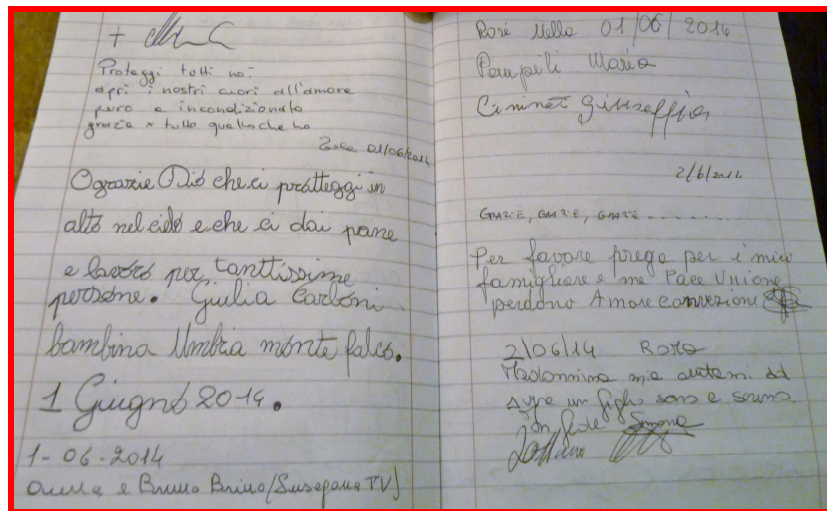 Proteggi tutti noi
apri i nostri cuori all'amore
puro e incondizionato
grazie x tutto quello che ho
01/06/2014
O grazie Dio che ci protteggi in
alto nel cielo e che ci dai pane
e lavoro per tanttissime
persone. Giulia Carboni
bambina Umbria monte falco.
1 Giugno 2014.
1-06-2014
e Bruno Brino (Susegana TV)
Rosé Nella 01/06/2014
Pompili Maria
Giuseppina
2/6/2014
GRAZIE, GRAZIE, GRAZIE.........
Per favore prega per i miei
famigliare e me Pace Unione
perdono Amore conversione
2/06/14
Madonnina mia aiutami ad
avere un figlio sano e sereno.
Con fede Simona